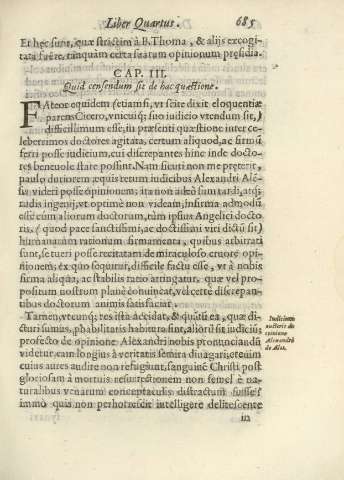 Liber Quartus. 685
Et hęc sunt, quæ strictim à B. Thoma, & alijs excogi-
tata fuêre, tanquàm certa suarum opinionum pręsidia.
CAP. III.
Quid censendum sit de hac quæstione.
FAteor equidem (etiamsi, vt scitè dixit eloquentiæ
parens Cicero, vnicuiq; suo iudicio vtendum sit,)
difficillimum esse, in præsenti quæstione inter ce-
leberrimos doctores agitata, certum aliquod, ac firmũ
ferri posse iudicium, cui discrepantes hinc inde docto-
res beneuolè stare possint. Nam sicuti non me pręterit,
paulò duriorem aequi rerum iudicibus Alexandri Alé-
sis videri posse opinionem; ita non adeò sum tardi, atq;
rudis ingenij, vt optimè non videam, infirma admodũ
esse cùm aliorum doctorum, tùm ipsius Angelici docto
ris, (quod pace sanctissimi, ac doctissimi viri dictũ sit)
humanarum rationum firmamenta, quibus arbitrati
sunt, se tueri posse recitatam de miraculoso cruore opi-
nionem; éx quo sequitur, difficile factu esse, vt à nobis
firma aliqua, ac stabilis ratio attingatur, quæ vel pro-
positum nostrum planè conuincat, vel certè discrepan-
tibus doctorum animis satisfaciat.
Tamen, vtcunq; res ista accidat, & quãtũ ea, quæ di-
cturi sumus, pbabilitatis habitura sint, aliorũ sit iudiciũ;
profectò de opinione Alexandri nobis pronunciandũ
videtur, eam longiùs à veritatis semita diuagari; etenim
cuius aures audire non refugiunt, sanguinẽ Christi post
gloriosam à mortuis resurrectionem non semel è na-
turalibus venarum conceptaculis distractum fuisse?
immò quis non perhorrescit intelligere delitescente
in
Iudicium
auctoris de
opinione
Alexandri
de Ales.